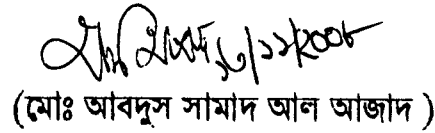 ১৩/১১/২০০৮
(মোঃ আবদুস সামাদ আল আজাদ )